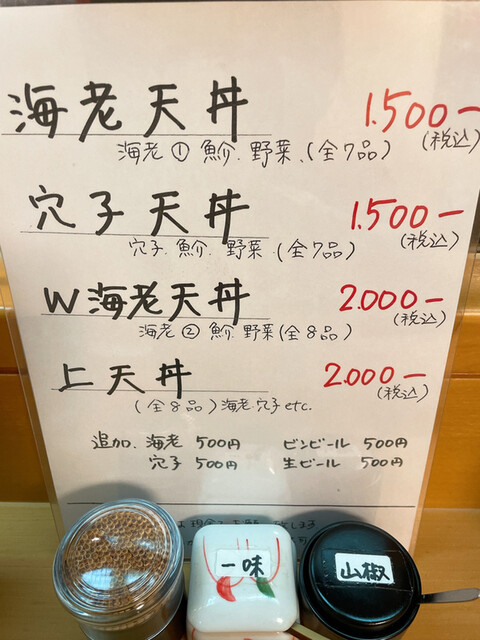 海老天丼 1.500-
海老① 魚介.野菜.(全7品) (税込)
穴子天丼 1.500-
穴子.魚介.野菜(全7品) (税込)
W海老天丼 2.000-
海老② 魚介.野菜(全8品) (税込)
上天丼 2.000-
(全8品)海老.穴子etc. (税込)
追加.海老 500円 ビンビール 500円
穴子 500円 生ビール 500円
一味
山椒